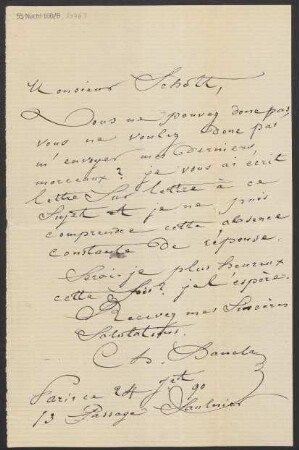 55 Nachl 100/B
Monsieur Schott,
Vous ne pouvez donc pas,
vous ne voulez donc pas
m'envoyer mes derniers
morceaux? je vous ai écrit
lettre sur lettre à ce
sujet et je ne puis
comprendre cette absence
constante de réponse.
Serai-je plus heureux
cette fois? je l'espère.
Recevez mes sincères
salutations.
Ch. Dancla
Paris ce 24 jet 90
13 Passage Saulnier